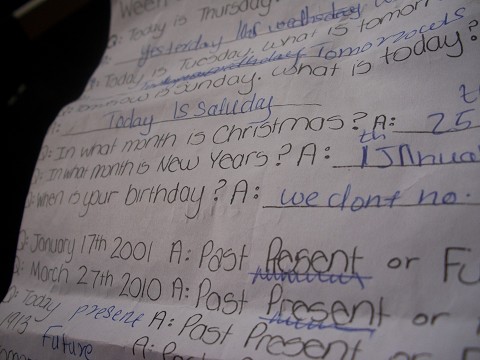 Week
Q: Today is Thursday.
Yesterday
Q: Today is Tuesday. What is tomorr
Tomorrows
is Sunday. What is today?
Today Is Saturday
Q: In what month is Christmas? A: 25 t
Q: In what month is New Years? A: 1th JAnua
Q: When is your birthday? A: we dont no.
Q: January 17th 2001 A: Past Present or Fu
Q: March 27th 2010 A: Past Present or
Q: Today present A: Past Present or
1913 Future A: Pas